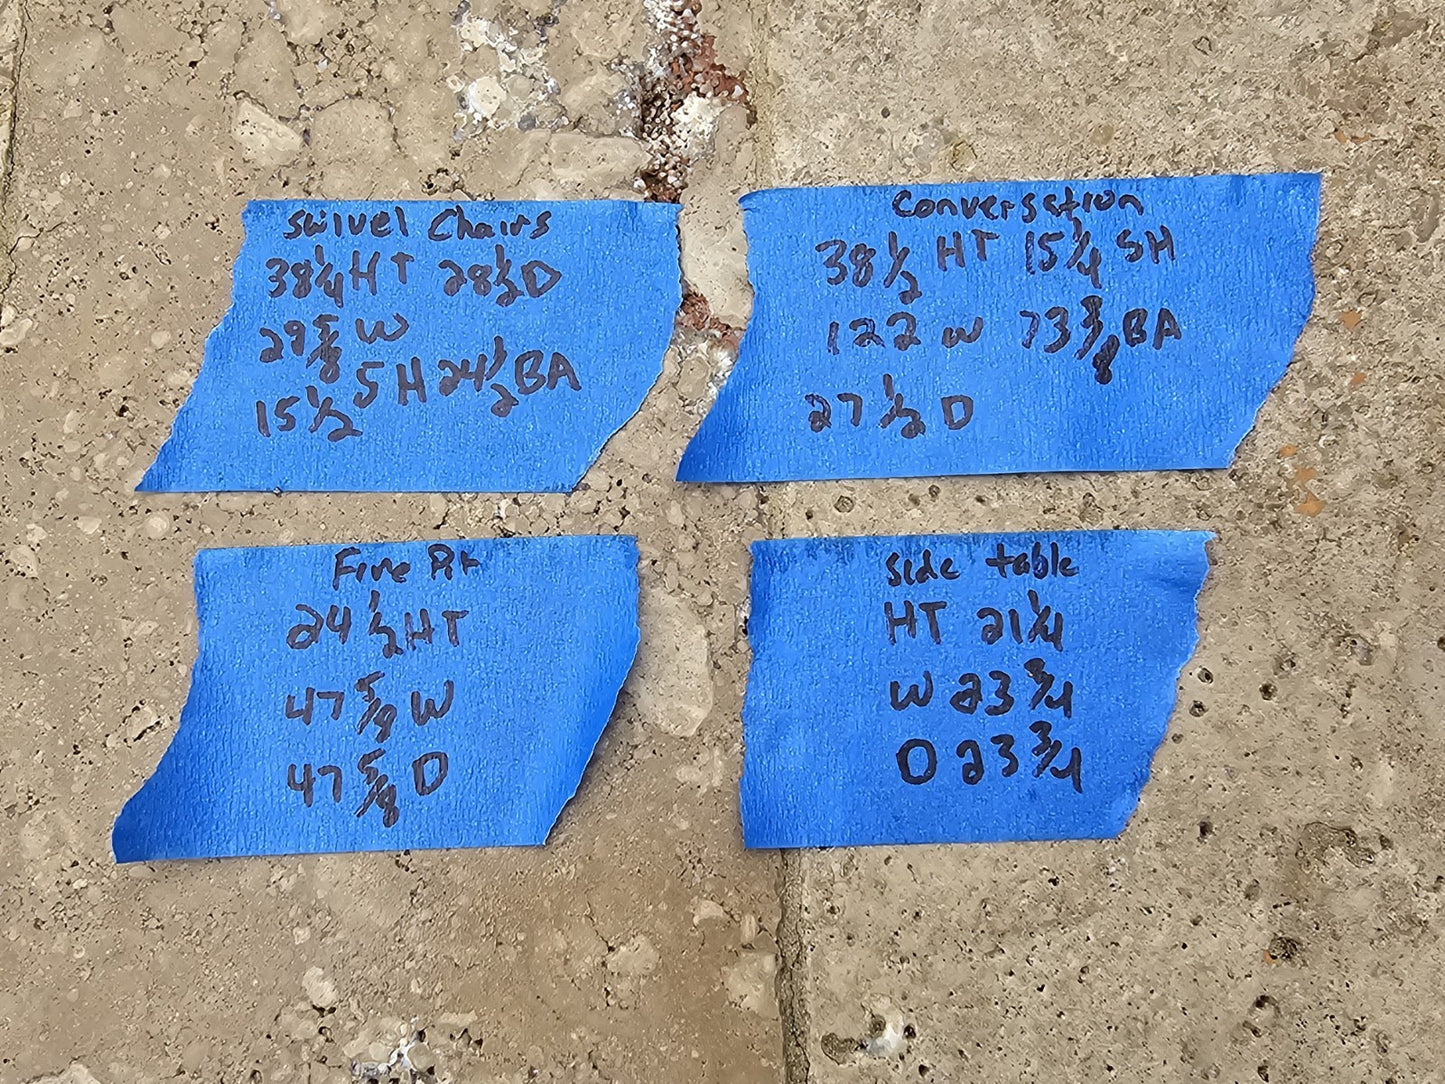 Swivel Chairs
38 1/4 HT 28 1/2 D
29 5/8 W
15 1/2 SH 24 1/2 BA
Conversation
38 1/2 HT 15 1/4 SH
122 W 73 3/8 BA
27 1/2 D
Fire Pit
24 1/2 HT
47 5/8 W
47 5/8 D
Side table
HT 21 1/4
W 23 3/4
D 23 3/4